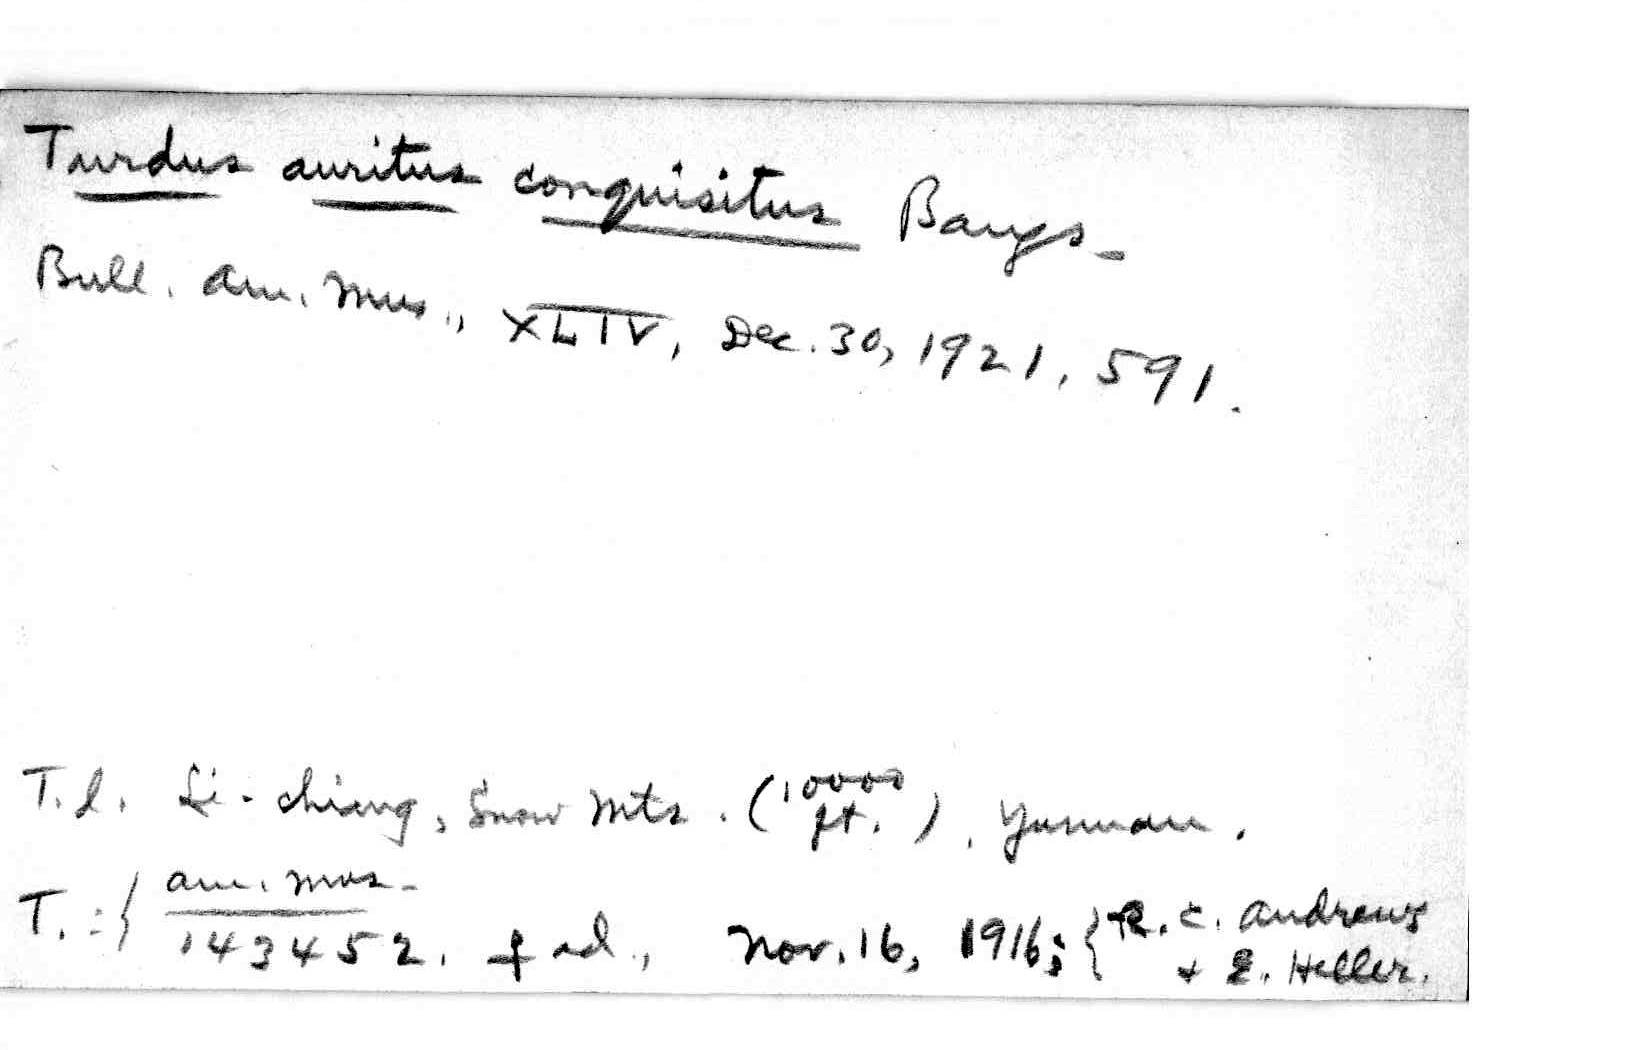 Turdus auritus conquisitus Bangs -
Bull. Am. Mus., XLIV, Dec. 30, 1921, 591.
T.l. Li-chiang, Snow Mts. (10000 ft.), Yunnan.
T. :{ Am. Mus. 143452. ♀ ad., Nov. 16, 1916; { R. C. Andrews
+ E. Heller.